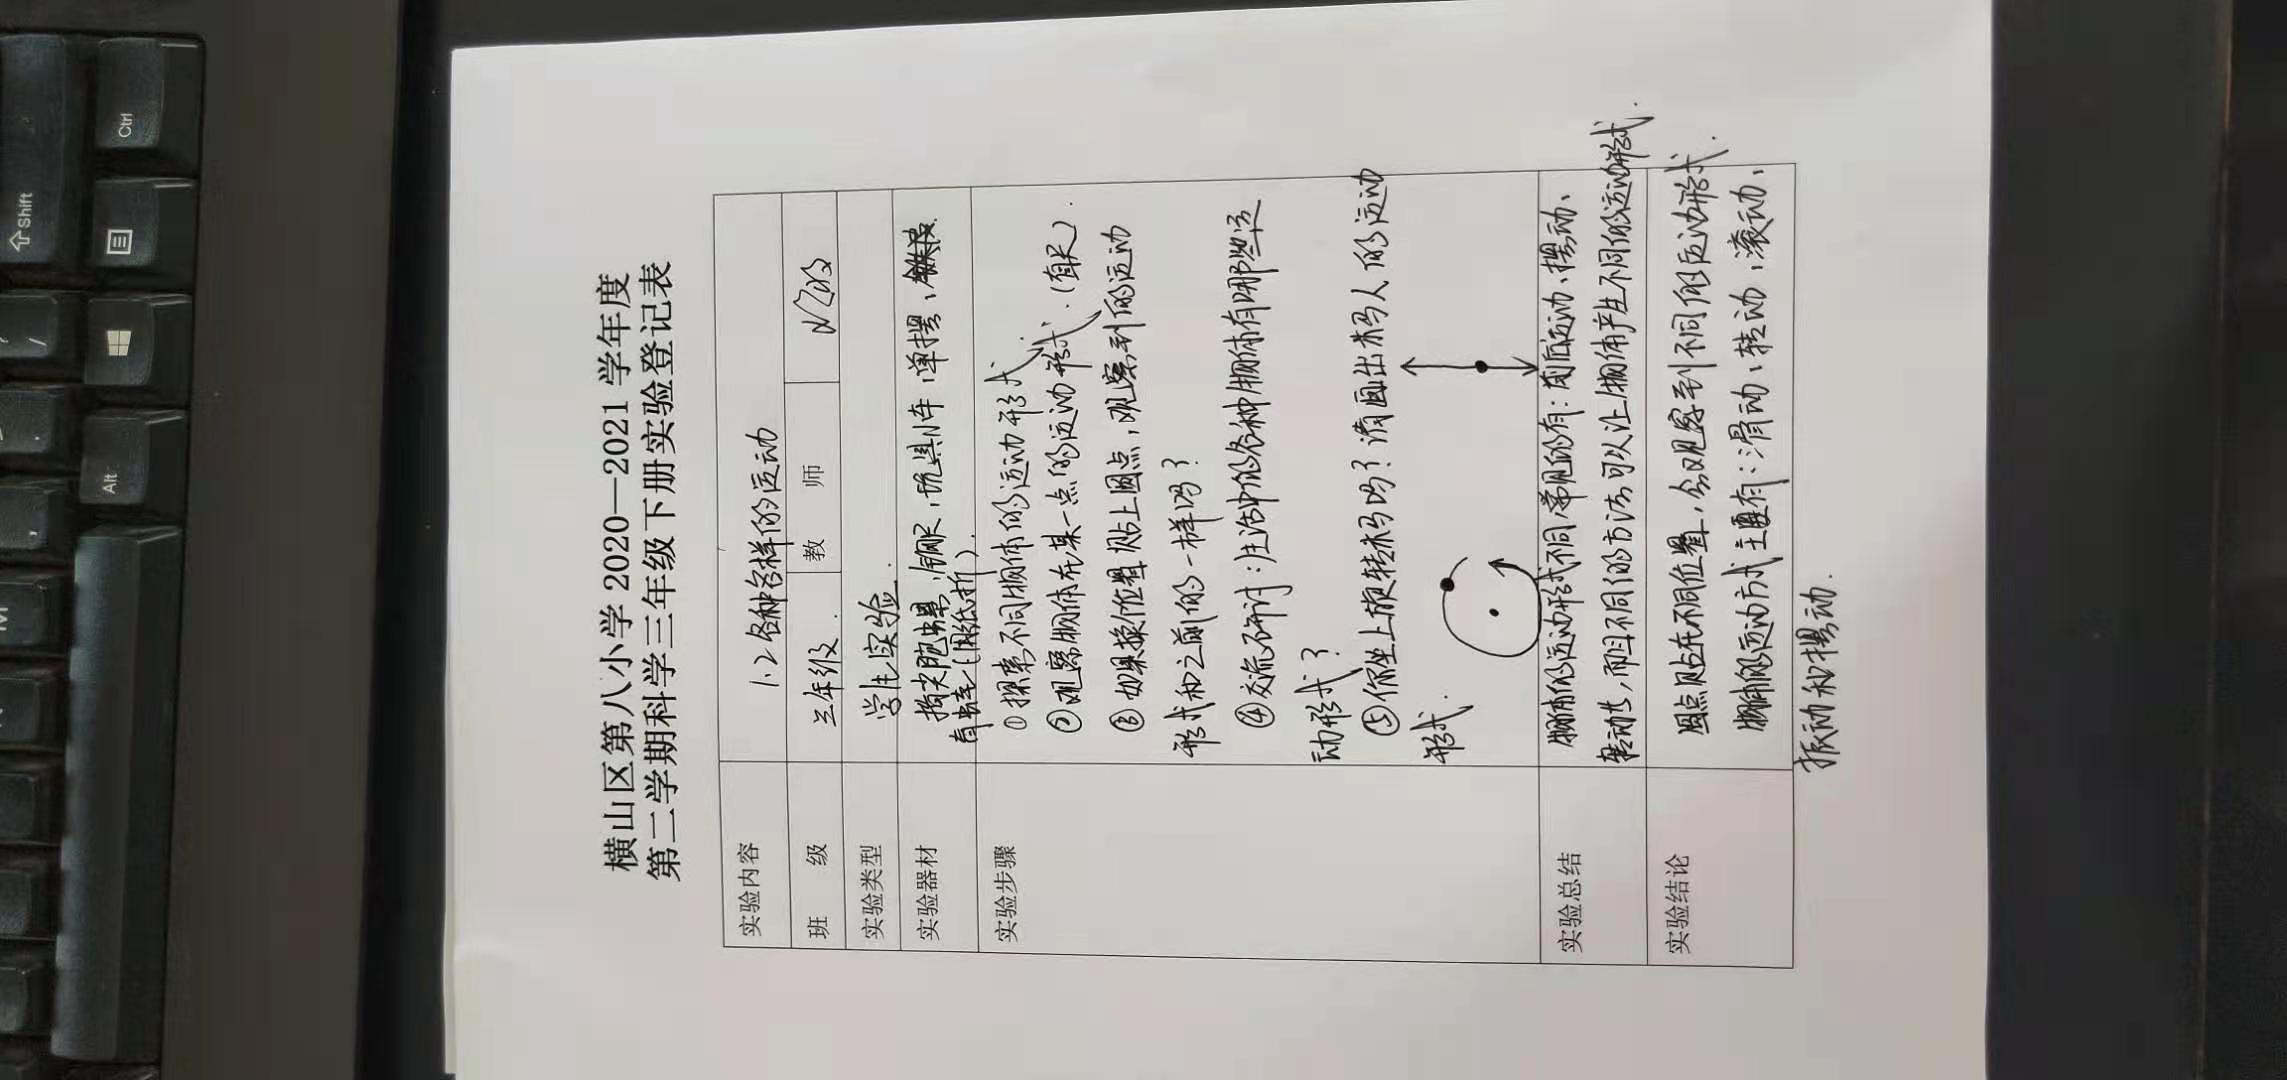 横山区第八小学 2020—2021 学年度
第二学期科学三年级下册实验登记表
实验内容 1.2各种各样的运动
班 级 三年级. 教 师
实验类型 学生实验.
实验器材 指尖陀螺,钢尺,玩具小车,单摆,
①探索不同物体的运动形式.
②观察物体在某一点的运动形式.(直尺).
实验步骤 ③如果换位置贴上圆点,观察到的运动
形式和之前的一样吗?
④交流研讨:生活中的各种物体有哪些运
动形式?
⑤你坐上旋转木马吗?请画出木马人的运动
形式.
实验总结 物体的运动形式不同,常见的有:前后运动、摆动、
转动等,而且不同的方法可以让物体产生不同的运动形式.
实验结论 圆点贴在不同位置,会观察到不同的运动形式.
物体的运动方式主要有:滑动、转动、滚动、
振动和摆动.
Shift
Ctrl
Alt